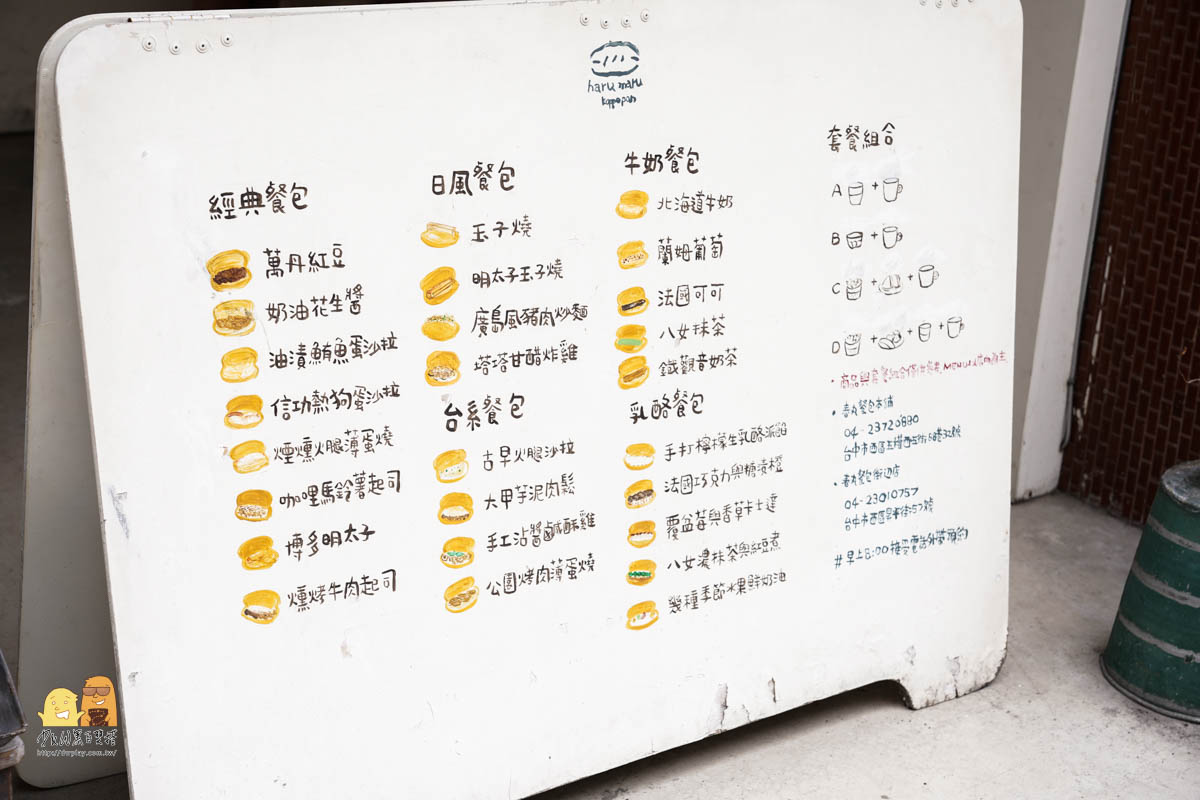 haru maru
koppepan
經典餐包
萬丹紅豆
奶油花生醬
油漬鮪魚蛋沙拉
信功熱狗蛋沙拉
煙燻火腿薄蛋燒
咖哩馬鈴薯起司
博多明太子
燻烤牛肉起司
日風餐包
玉子燒
明太子玉子燒
廣島風豬肉炒麵
塔塔甘醋炸雞
台系餐包
古早火腿沙拉
大甲芋泥肉鬆
手工沾醬鹹酥雞
公園烤肉薄蛋燒
牛奶餐包
北海道牛奶
蘭姆葡萄
法國可可
八女抹茶
鐵觀音奶茶
乳酪餐包
手打檸檬生乳酪派餡
法國巧克力與糖漬橙
覆盆莓與香草卡士達
八女濃抹茶與紅豆煮
幾種季節水果鮮奶油
套餐組合
A + 
B + 
C + + 
D + + + 
• 商品與套餐組合價格參考MENU
• 春丸餐包本鋪
04-23720880
台中市西區五權西五街
• 春丸餐包街邊店
04-23010757
台中市西區
#早上8:00接受電話外帶預約
http://dwrplay.com.tw/